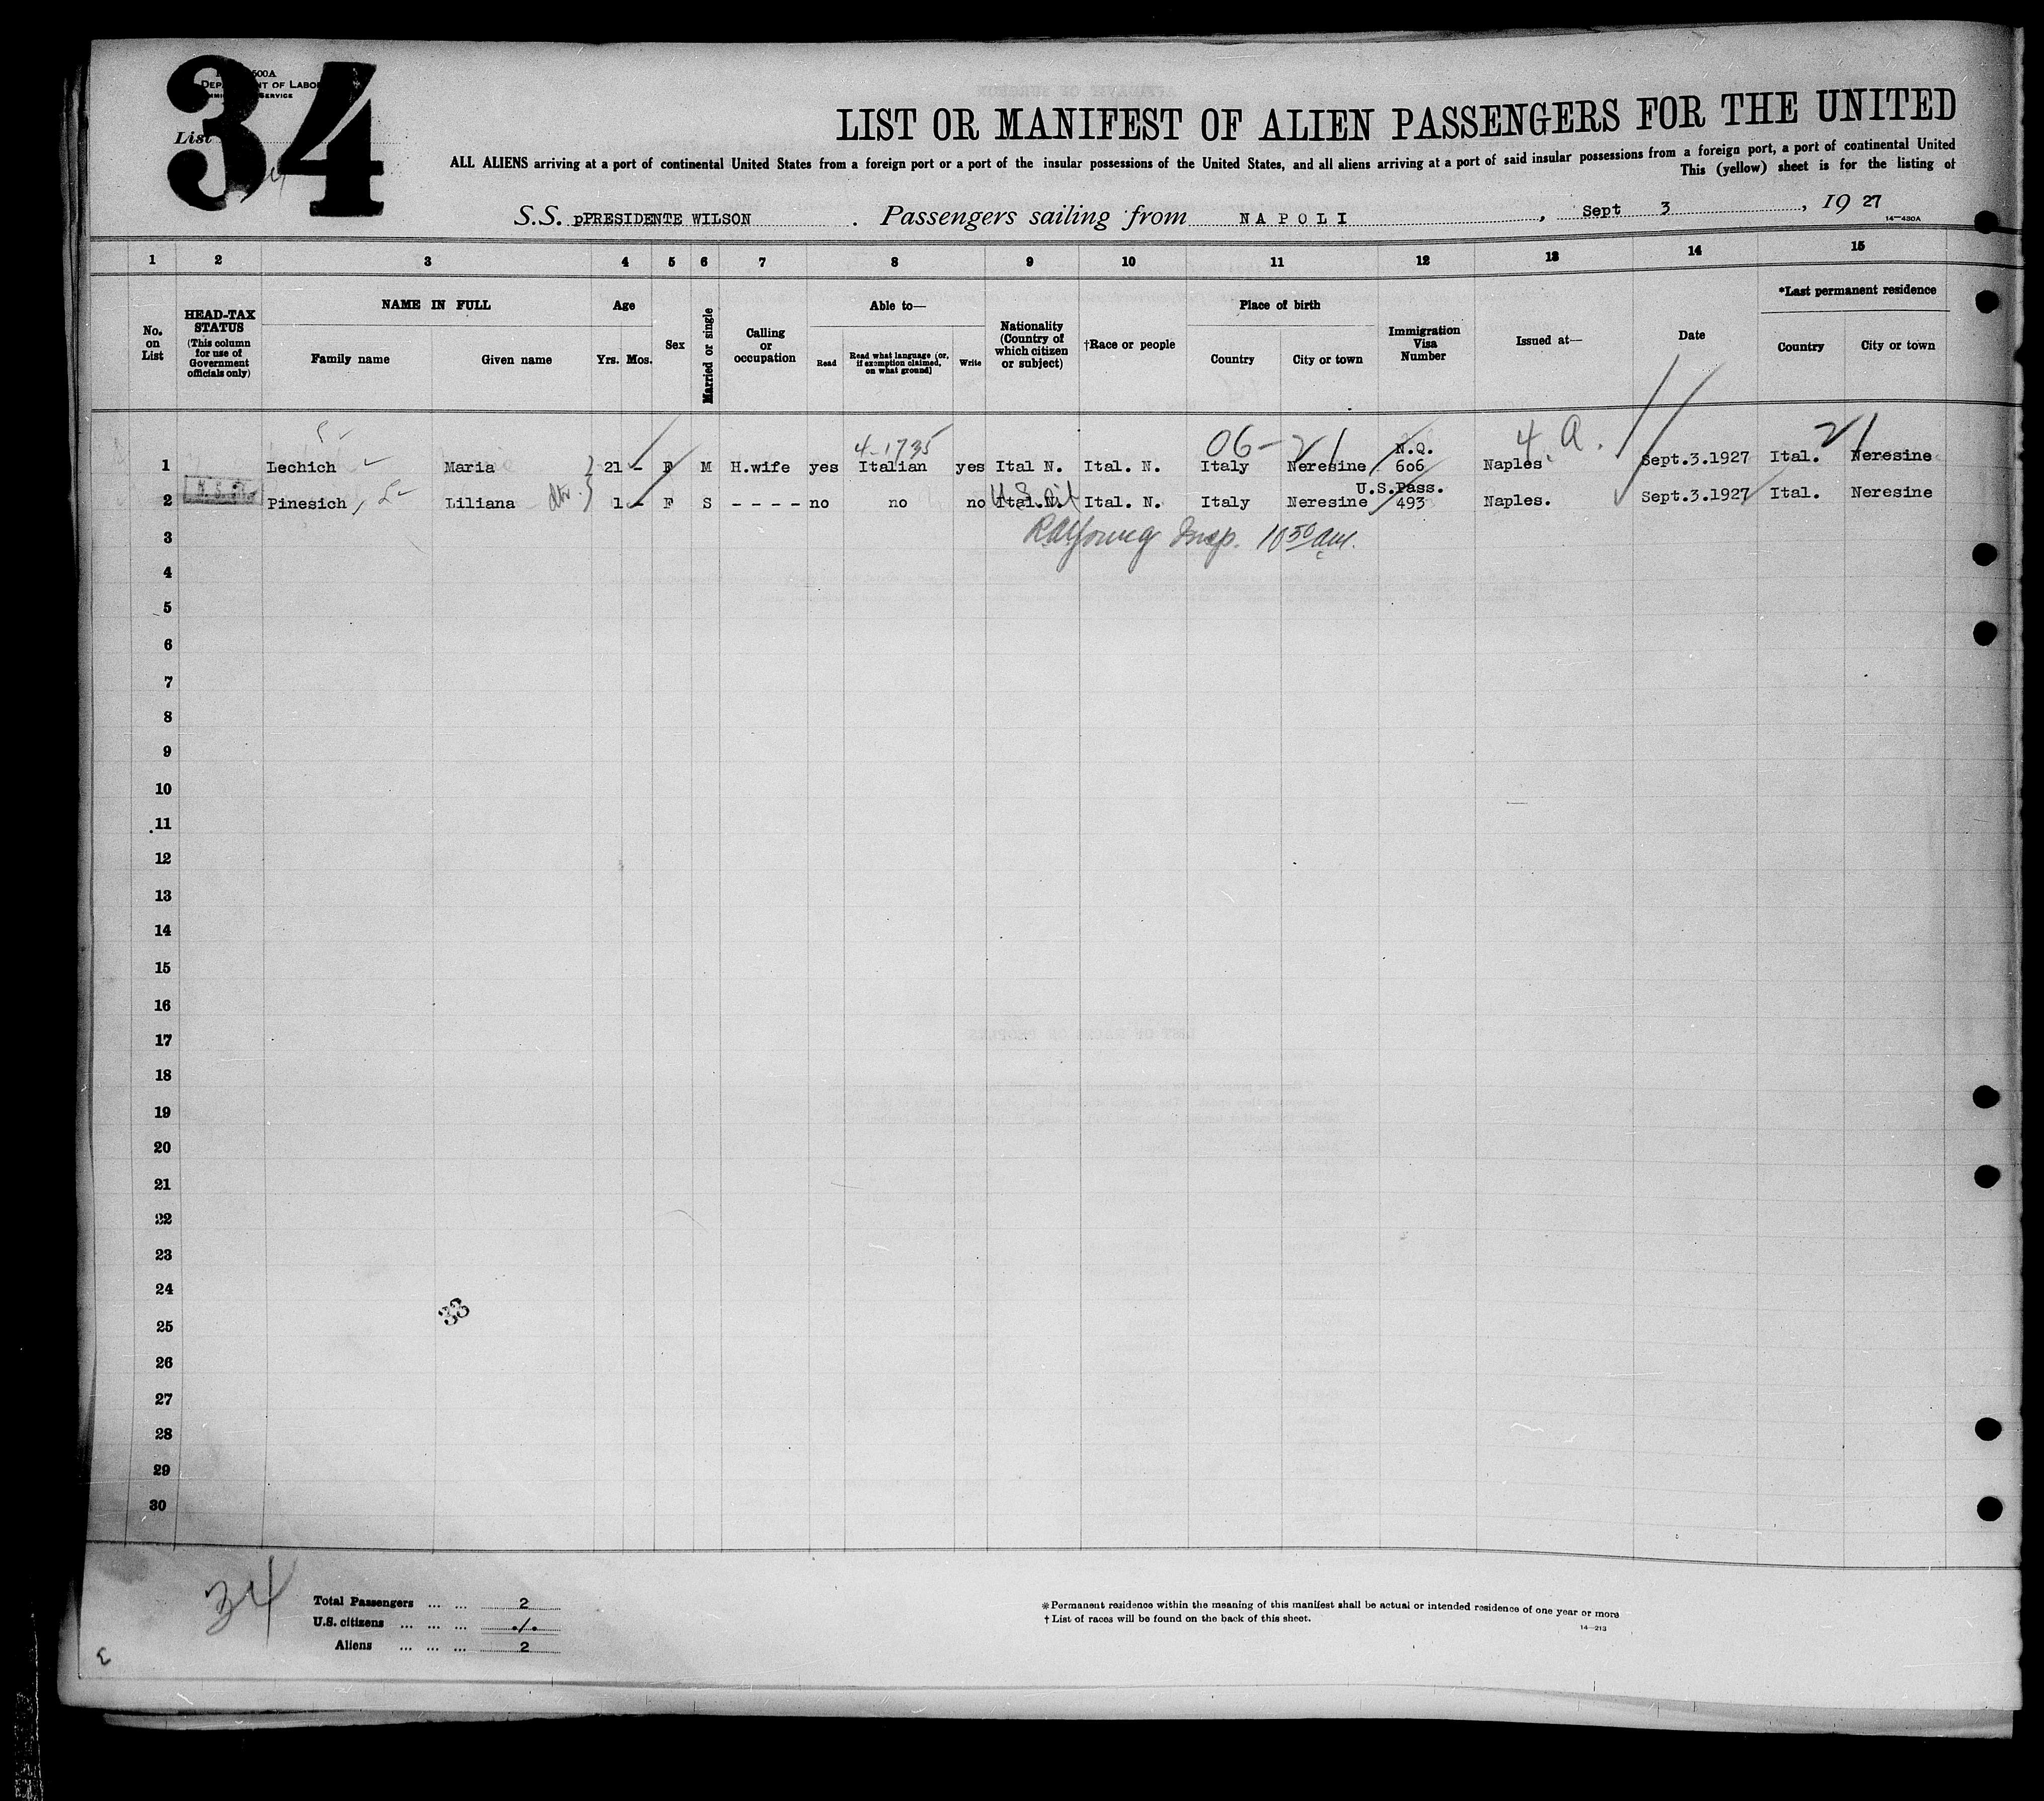 34
500A
List
LIST OR MANIFEST OF ALIEN PASSENGERS FOR THE UNITED
ALL ALIENS arriving at a port of continental United States from a foreign port or a port of the insular possessions of the United States, and all aliens arriving at a port of said insular possessions from a foreign port, a port of continental United
This (yellow) sheet is for the listing of
S.S. pPRESIDENTE WILSON . Passengers sailing from NAPOLI , Sept 3 , 19 27
14—430A
1 2 3 4 5 6 7 8 9 10 11 12 13 14 15
No. on List
HEAD-TAX STATUS
(This column for use of Government officials only)
NAME IN FULL
Family name Given name
Age
Yrs. Mos.
Sex
Married or single
Calling or occupation
Able to—
Read Read what language (or, if exemption claimed, on what ground) Write
Nationality (Country of which citizen or subject)
†Race or people
Place of birth
Country City or town
Immigration Visa Number
Issued at—
Date
*Last permanent residence
Country City or town
4-1735 06-21 N.Q. 4.a. 21
1 Lechich Maria 21 - F M H.wife yes Italian yes Ital N. Ital. N. Italy Neresine 606 Naples Sept.3.1927 Ital. Neresine
U.S. cit U.S.Pass.
2 Pinesich Liliana dtr. 1 - F S - - - - no no no Ital.N. Ital. N. Italy Neresine 493 Naples. Sept.3.1927 Ital. Neresine
3 RAYoung Insp. 10 30 am.
4
5
6
7
8
9
10
11
12
13
14
15
16
17
18
19
20
21
22
23
24
33
25
26
27
28
29
30
34
Total Passengers ... ... 2
U.S. citizens ... ... ... ./.
Aliens ... ... ... 2
*Permanent residence within the meaning of this manifest shall be actual or intended residence of one year or more
†List of races will be found on the back of this sheet.
14—213